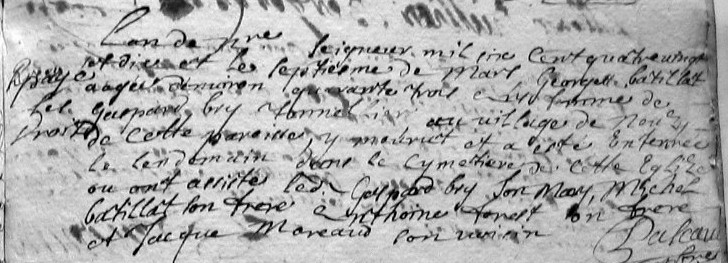 Lan de nre seigneur mil six cent quatre vingt
et dix et le septiesme de Mars Georgette batillat
aagée denviron quarante trois ans femme de
gaspard bry tonnelier au village de
de cette paroisse y mourut et a esté enterrée
le lendemain dans le Cymetiere de cette Eglize
ou ont assisté led. Gaspard bry son Mary, Michel
batillat son frere Anthoine forest son frere
et Jacque Moreaud son voisin
payé
les
droits